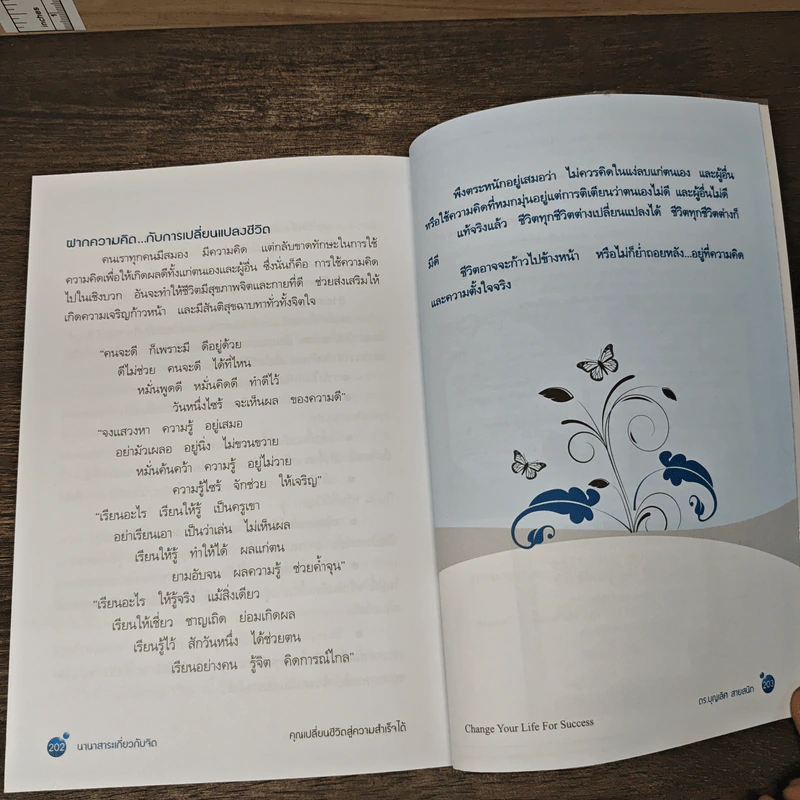 inches
ฝากความคิด...กับการเปลี่ยนแปลงชีวิต
คนเราทุกคนมีสมอง มีความคิด แต่กลับขาดทักษะในการใช้
ความคิดเพื่อให้เกิดผลดีทั้งแก่ตนเองและผู้อื่น ซึ่งนั่นก็คือ การใช้ความคิด
ไปในเชิงบวก อันจะทำให้ชีวิตมีสุขภาพจิตและกายที่ดี ช่วยส่งเสริมให้
เกิดความเจริญก้าวหน้า และมีสันติสุขฉาบทาทั่วทั้งจิตใจ
"คนจะดี ก็เพราะมี ดีอยู่ด้วย
ดีไม่ช่วย คนจะดี ได้ที่ไหน
หมั่นพูดดี หมั่นคิดดี ทำดีไว้
วันหนึ่งไซร้ จะเห็นผล ของความดี"
"จงแสวงหา ความรู้ อยู่เสมอ
อย่ามัวเผลอ อยู่นิ่ง ไม่ขวนขวาย
หมั่นค้นคว้า ความรู้ อยู่ไม่วาย
ความรู้ไซร้ จักช่วย ให้เจริญ"
"เรียนอะไร เรียนให้รู้ เป็นครูเขา
อย่าเรียนเอา เป็นว่าเล่น ไม่เห็นผล
เรียนให้รู้ ทำให้ได้ ผลแก่ตน
ยามอับจน ผลความรู้ ช่วยค้ำจุน"
"เรียนอะไร ให้รู้จริง แม้สิ่งเดียว
เรียนให้เชี่ยว ชาญเถิด ย่อมเกิดผล
เรียนรู้ไว้ สักวันหนึ่ง ได้ช่วยตน
เรียนอย่างคน รู้จิต คิดการณ์ไกล"
202 นานาสาระเกี่ยวกับจิต
คุณเปลี่ยนชีวิตสู่ความสำเร็จได้
พึงตระหนักอยู่เสมอว่า ไม่ควรคิดในแง่ลบแก่ตนเอง และผู้อื่น
หรือใช้ความคิดที่หมกมุ่นอยู่แต่การติเตียนว่าตนเองไม่ดี และผู้อื่นไม่ดี
แท้จริงแล้ว ชีวิตทุกชีวิตต่างเปลี่ยนแปลงได้ ชีวิตทุกชีวิตต่างก็
มีดี
ชีวิตอาจจะก้าวไปข้างหน้า หรือไม่ก็ย่ำถอยหลัง...อยู่ที่ความคิด
และความตั้งใจจริง
ดร.บุญเลิศ สายสนิท 203
Change Your Life For Success